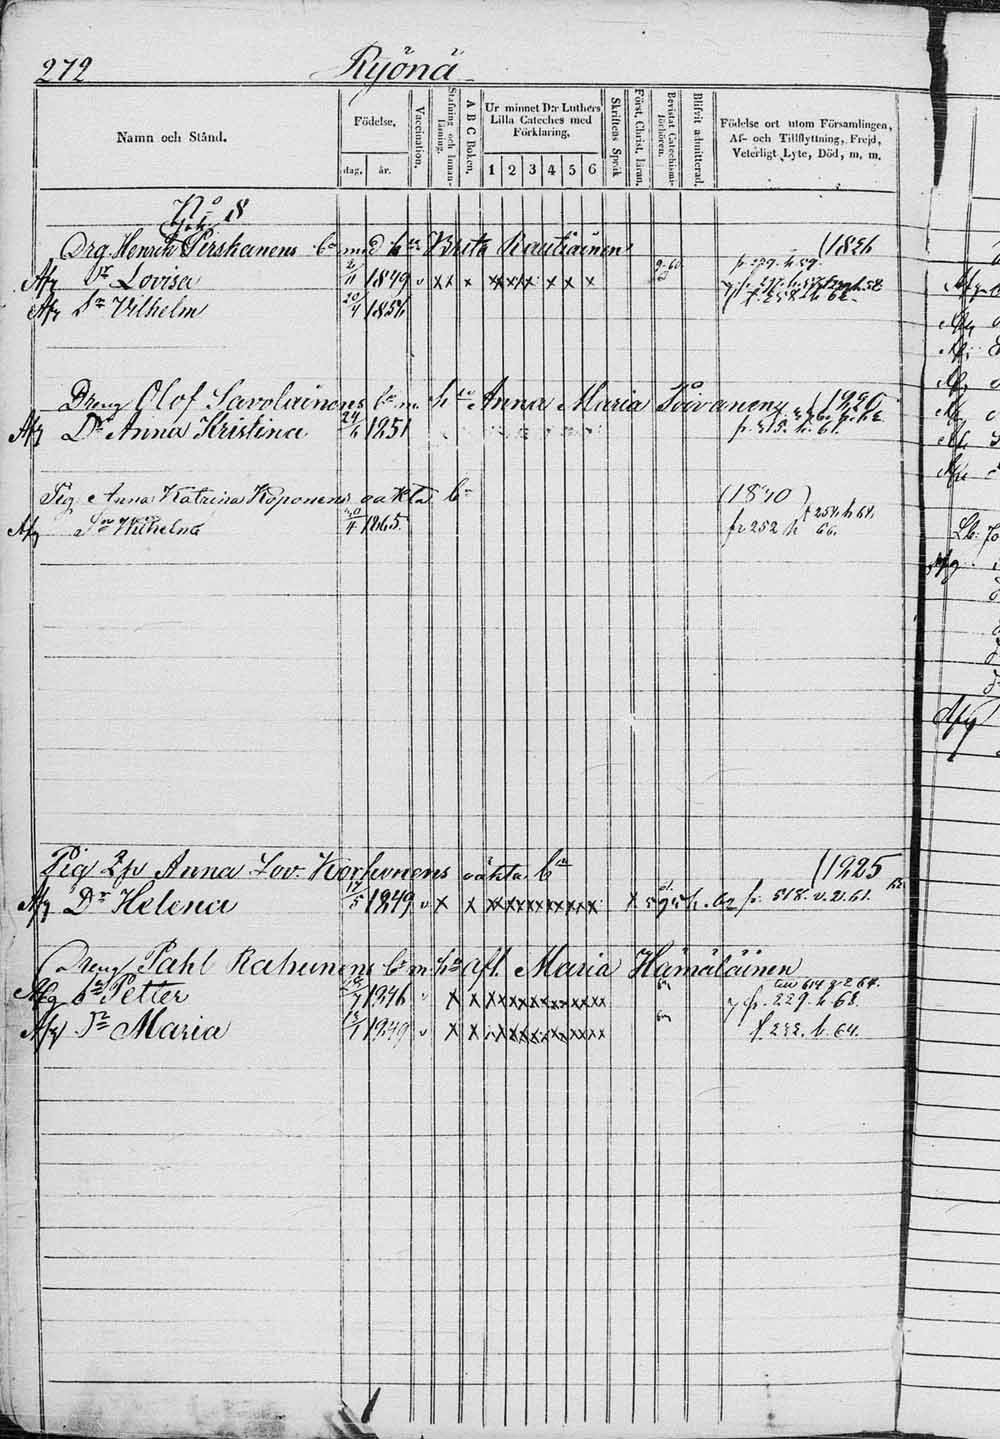 272 Ryönä
Namn och Stånd.
Födelse,
dag. år.
Vaccination.
Stafning och Innan-läsning.
A B C Boken.
Ur minnet D:r Luthers Lilla Cateches med Förklaring,
1 2 3 4 5 6
Skriftens Språk
Först. Christ. läran.
Bevistat Catechismi-förhören.
Blifvit admitterad.
Födelse ort utom Församlingen,
Af- och Tillflyttning, Frejd,
Veterligt Lyte, Död, m. m.
No 8
Drg. Henrik Pershanens bn med h:u Brita Rautiainen (1826
Afg Dr Lovisa 2/11 1849 v x x x x x x x x x x
Afg Sn Vilhelm 20/4 1856
Dreng Olof Savolainens bn m. h:u Anna Maria Toivanen (1220
Afg Dr Anna Kristina 24/6 1851 p. 215. h. 61.
Pig. Anna Katrina Koponens oäkta bn (1840)
Afg Sn Wilhelm 20/4 1865. fr 252 h 66.
Pig Anna Lov. Korhonens oäkta bn (1225
Afg Dr Helena 17/5 1849 v x x x x x x x x x x x p. 518.
Dreng Pahl Rahunens bn m h:u afl. Maria Hämäläinen
Afg Sn Petter 1846 x x x x x x x x x x p. 229. h 68.
Afg Dr Maria 1849 v x x x x x x x x x x p. 232. h. 64.